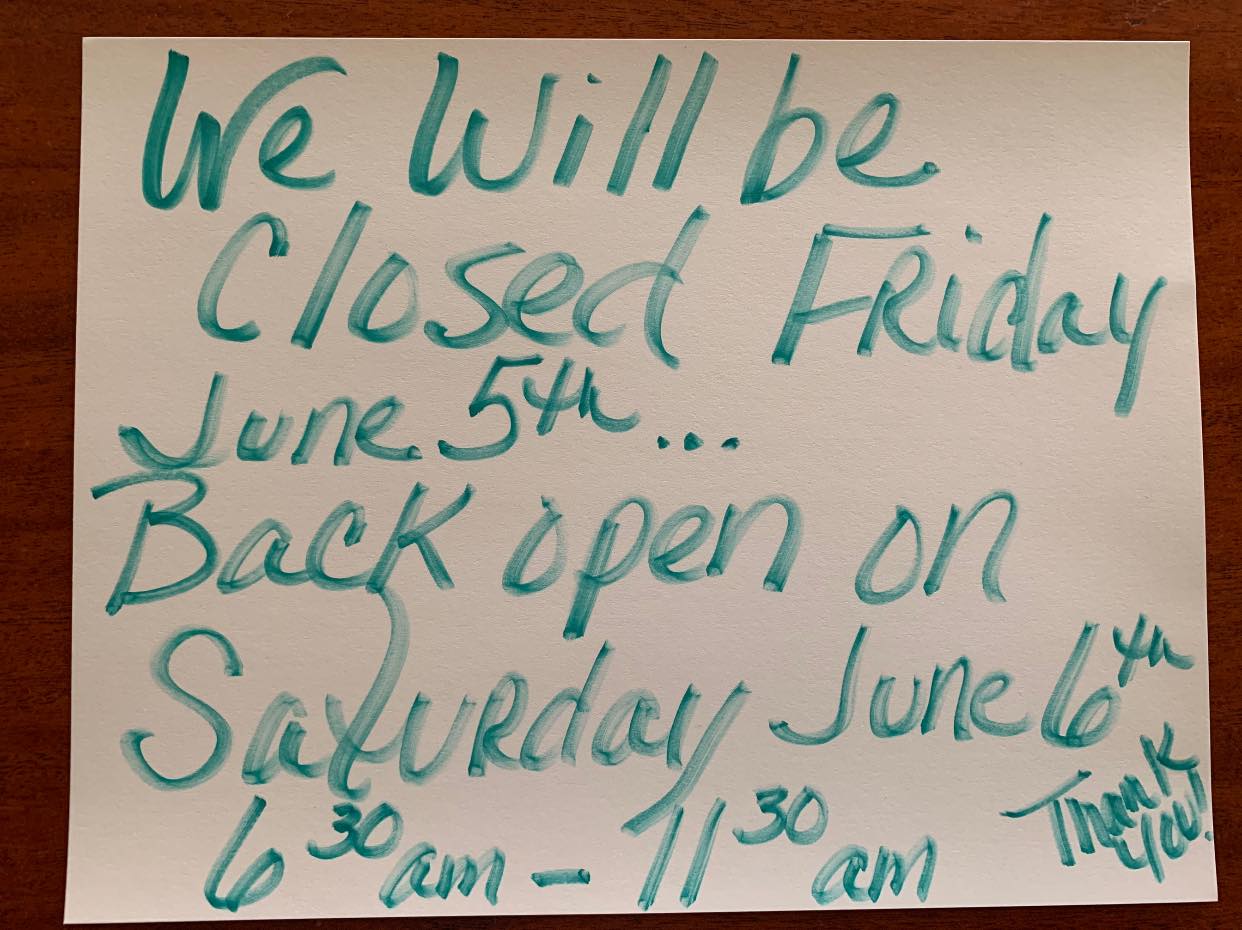 We Will be.
Closed Friday
June 5th...
Back open on
Saturday June 6th
6 30 am - 11 30 am
Thank
you!